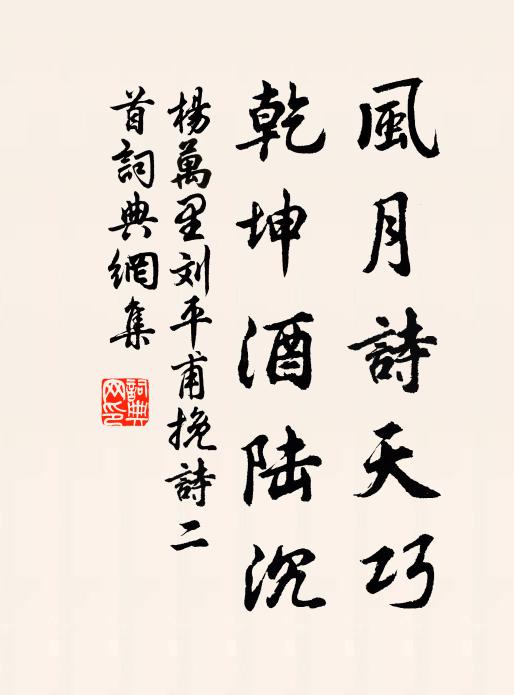 風月詩天巧
乾坤酒陆沉
楊萬里刘平甫挽詩二
首詞典網集
詞典
网印